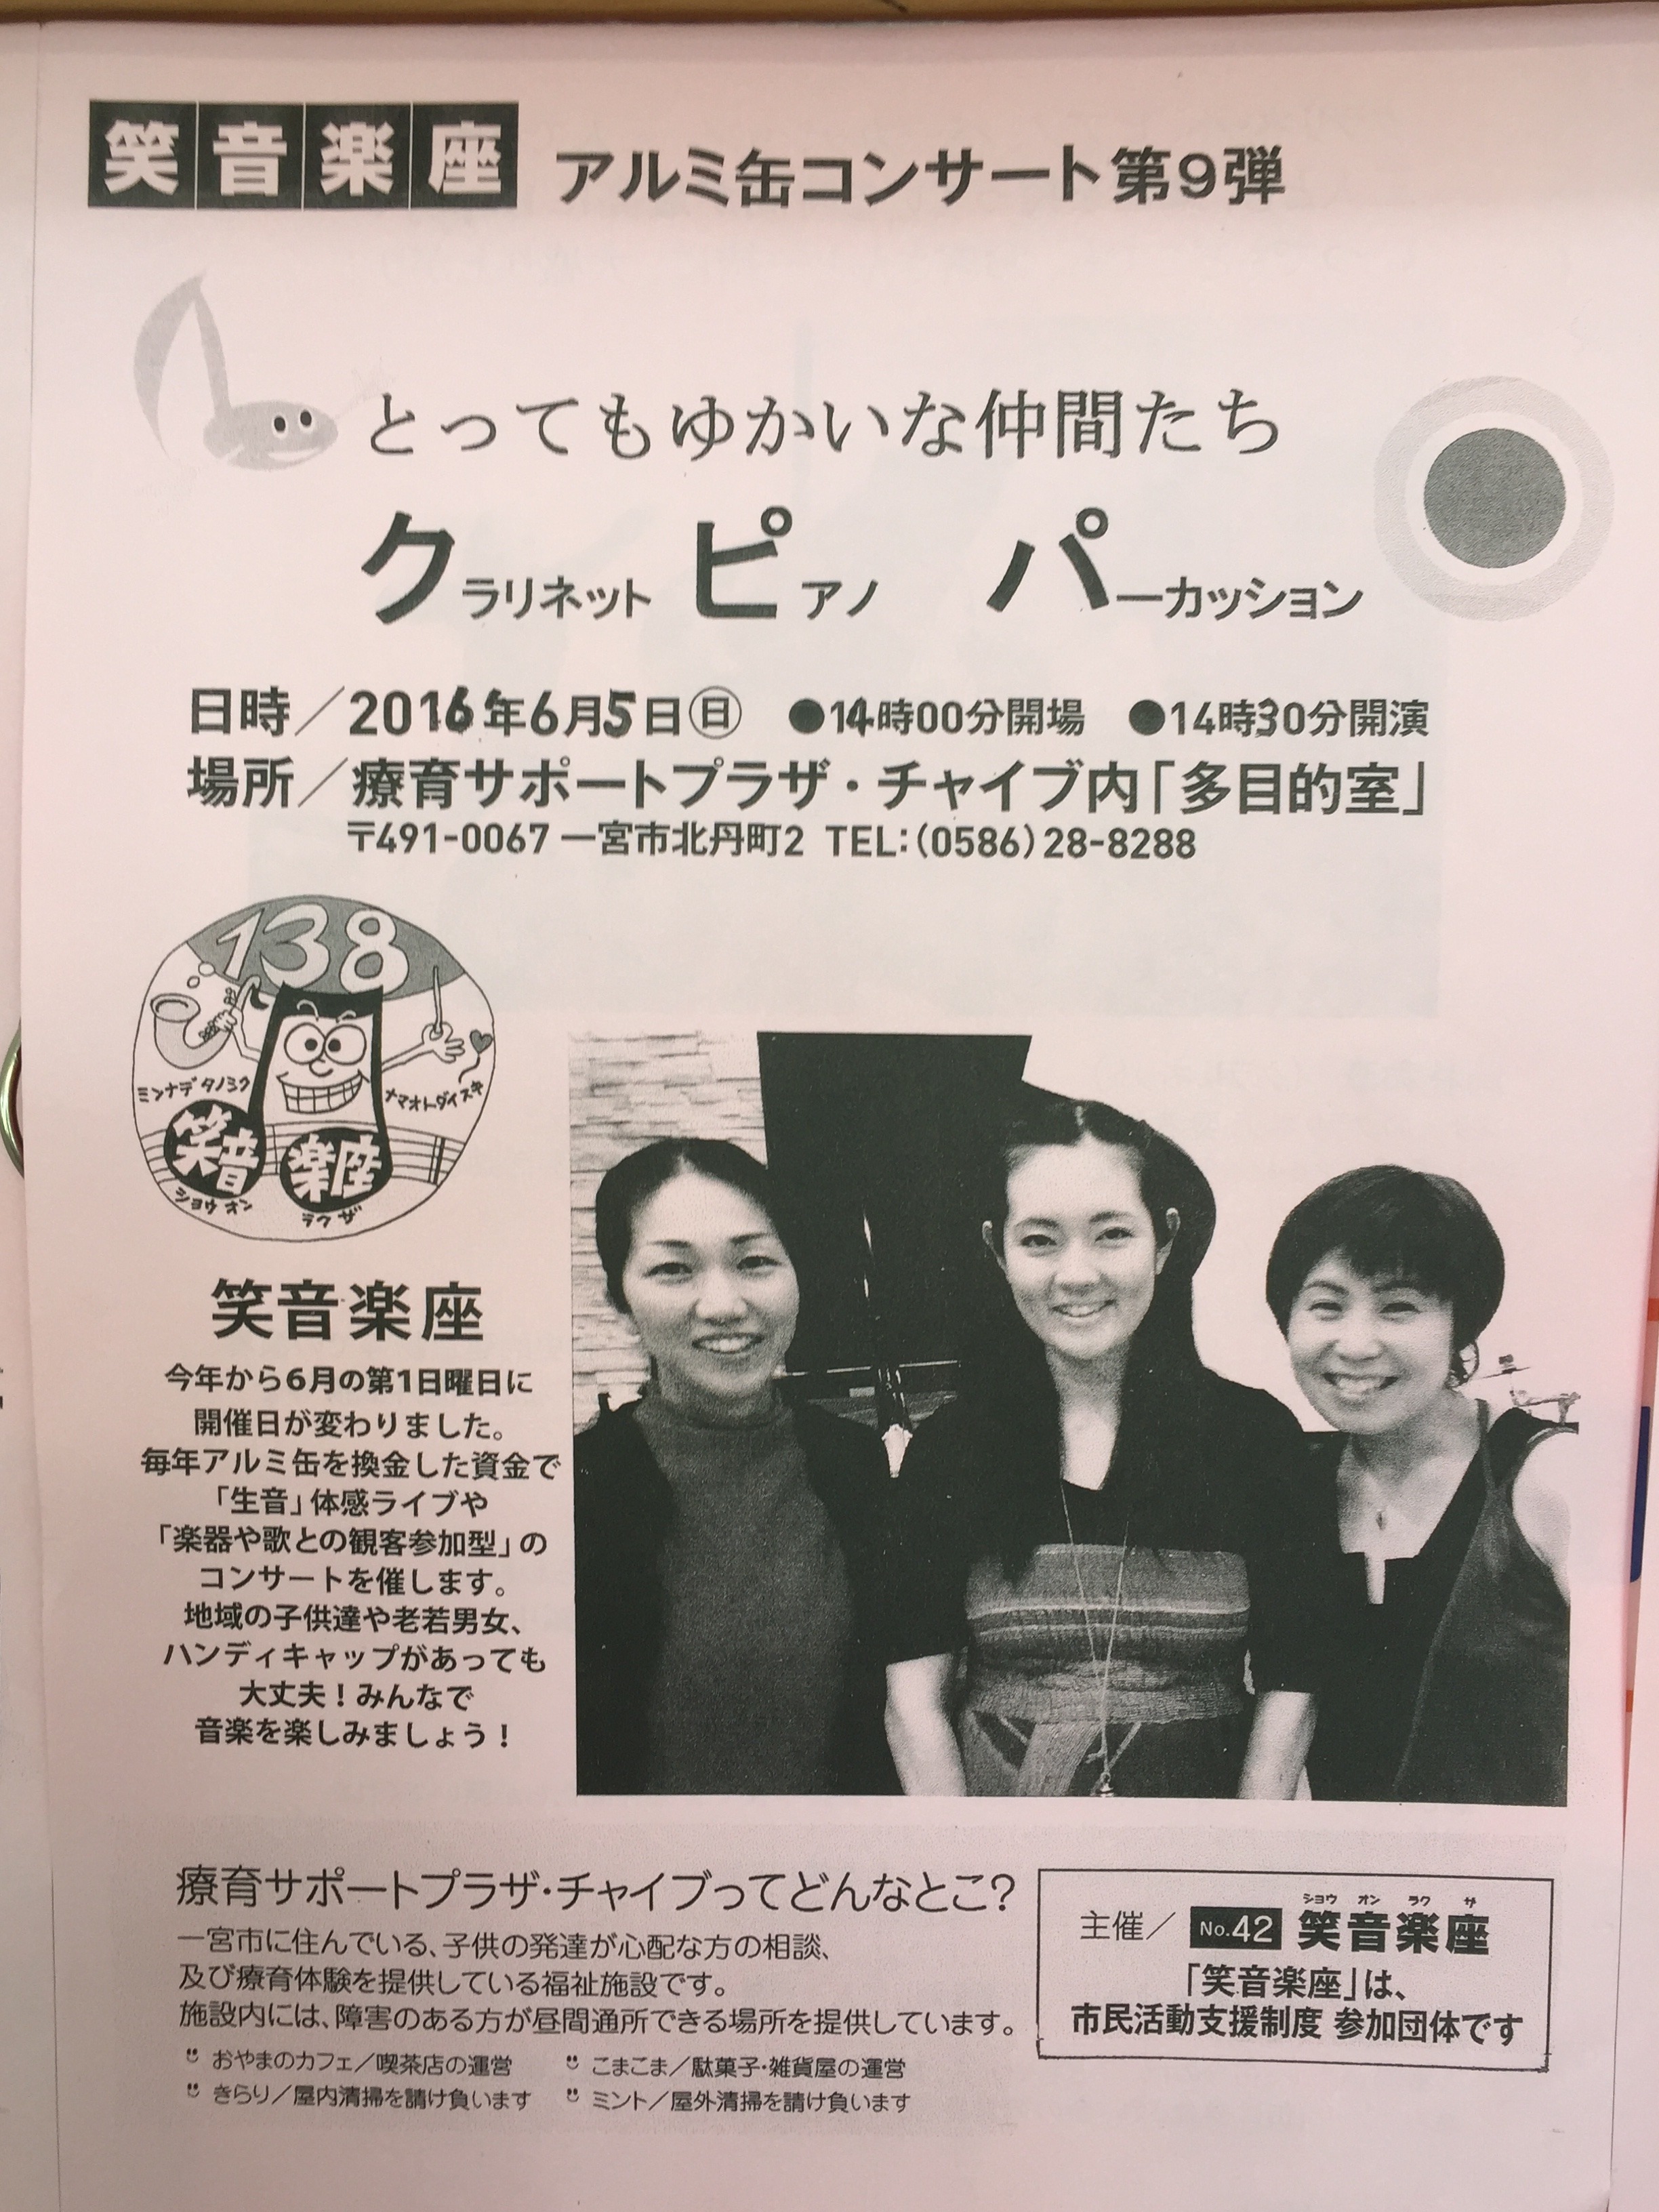 笑音楽座 アルミ缶コンサート第9弾
とってもゆかいな仲間たち
クラリネット ピアノ パーカッション
日時／2016年6月5日㊐ ●14時00分開場 ●14時30分開演
場所／療育サポートプラザ・チャイブ内「多目的室」
〒491-0067 一宮市北丹町2 TEL:(0586)28-8288
138
ミンナデタノシク
ナマオトダイスキ
笑音
楽座
ショウオン
ラクザ
笑音楽座
今年から6月の第1日曜日に
開催日が変わりました。
毎年アルミ缶を換金した資金で
「生音」体感ライブや
「楽器や歌との観客参加型」の
コンサートを催します。
地域の子供達や老若男女、
ハンディキャップがあっても
大丈夫！みんなで
音楽を楽しみましょう！
療育サポートプラザ・チャイブってどんなとこ?
一宮市に住んでいる、子供の発達が心配な方の相談、
及び療育体験を提供している福祉施設です。
施設内には、障害のある方が昼間通所できる場所を提供しています。
おやまのカフェ／喫茶店の運営 こまこま／駄菓子・雑貨屋の運営
きらり／屋内清掃を請け負います ミント／屋外清掃を請け負います
ショウ オン ラク ザ
主催／ No.42 笑音楽座
「笑音楽座」は、
市民活動支援制度 参加団体です